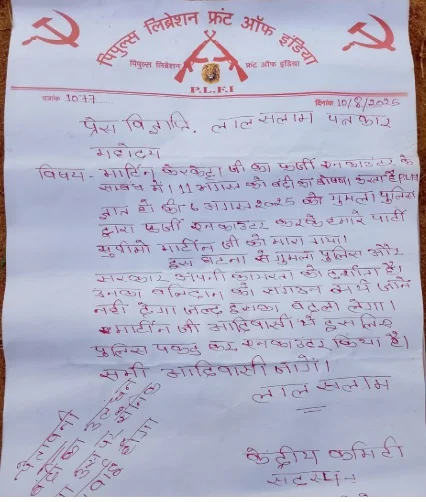 पिपुल्स लिब्रेशन फ्रंट ऑफ इंडिया
पिपुल्स लिबरेशन फ्रंट ऑफ इंडिया
P.L.F.I
पत्रांक 1077 दिनांक 10/8/2025
प्रेस विज्ञप्ति, लाल सलाम पत्रकार
महोदय
विषय- मार्टिन केरकेट्टा जी का फर्जी एनकाउंटर के
सम्बंध में। 11 अगस्त को बंदी का घोषणा करता है PLFI
ज्ञात हो की 6 अगस्त 2025 को गुमला पुलिस
द्वारा फर्जी एनकाउंटर करके हमारे पार्टी
सुप्रीमो मार्टिन जी को मारा गया।
इस घटना से गुमला पुलिस और
सरकार अपनी कायरता को दर्शाया है।
उनका बलिदान को संगठन व्यर्थ जाने
नहीं देगा जल्द इसका बदला लेगा।
मार्टीन जी आदिवासी थे इस लिए
पुलिस पकड़ कर एनकाउंटर किया है।
सभी आदिवासी जागें।
लाल सलाम
केंद्रीय कमिटी
चेतावनी
बंदी का